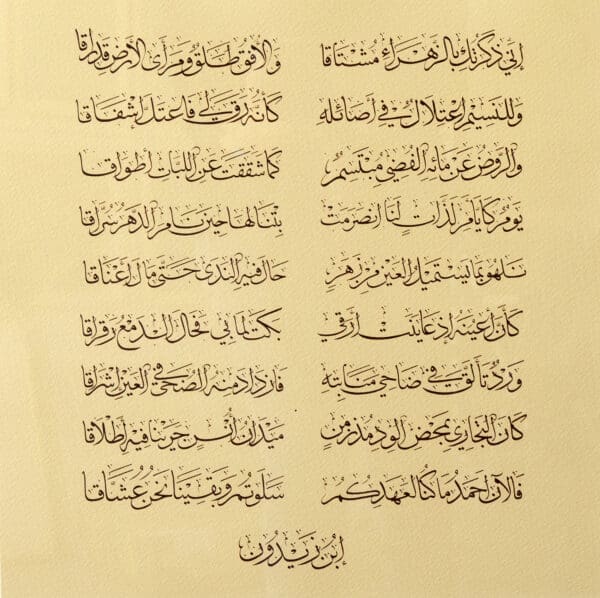 إني ذكرتك بالزهراء مشتاقا والافق طلق ومرأى الأرض قد راقا
وللنسيم اعتلال في أصائله كأنه رق لي فاعتل إشفاقا
والروض عن مائه الفضي مبتسم كما شققت عن اللبات أطواقا
يوم كأيام لذات لنا انصرمت بتنا لها حين نام الدهر سراقا
نلهو بما يستميل العين من زهر جال فيه الندى حتى مال أعناقا
كأن أعينه إذ عاينت أرقي بكت لما بي فجال الدمع رقراقا
ورد تألق في ضاحي منابته فازداد منه الضحى في العين إشراقا
كان التجاري بمحض الود مذ زمن ميدان أنس جرينا فيه أطلاقا
فالآن احمد ما كنا لعهدكم سلوتم وبقينا نحن عشاقا
إبن زيدون